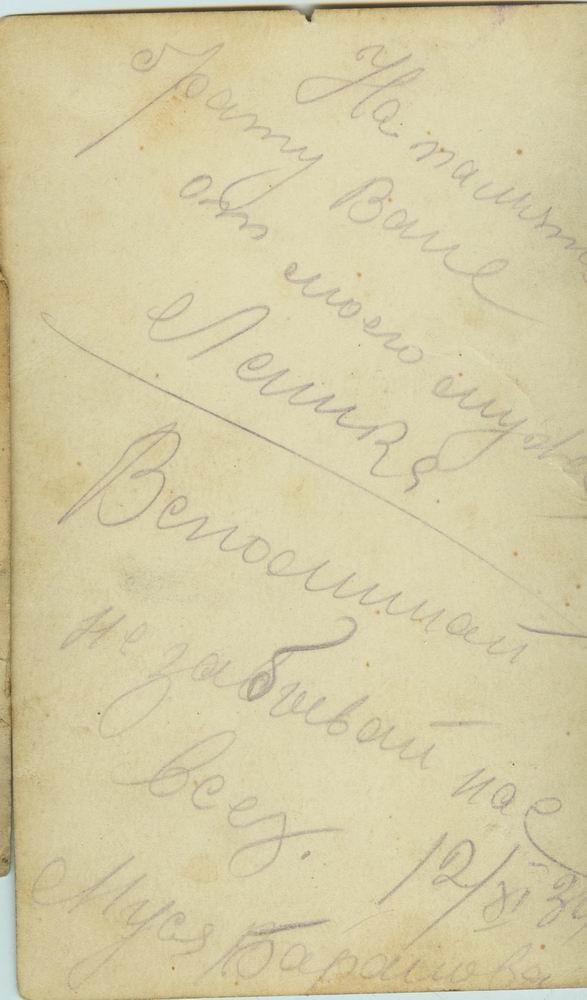 На памят
брату Ване
от моего муж
Леника
Вспоминай
не забывай нас
всех.
12/XI 3
Муся Барашова